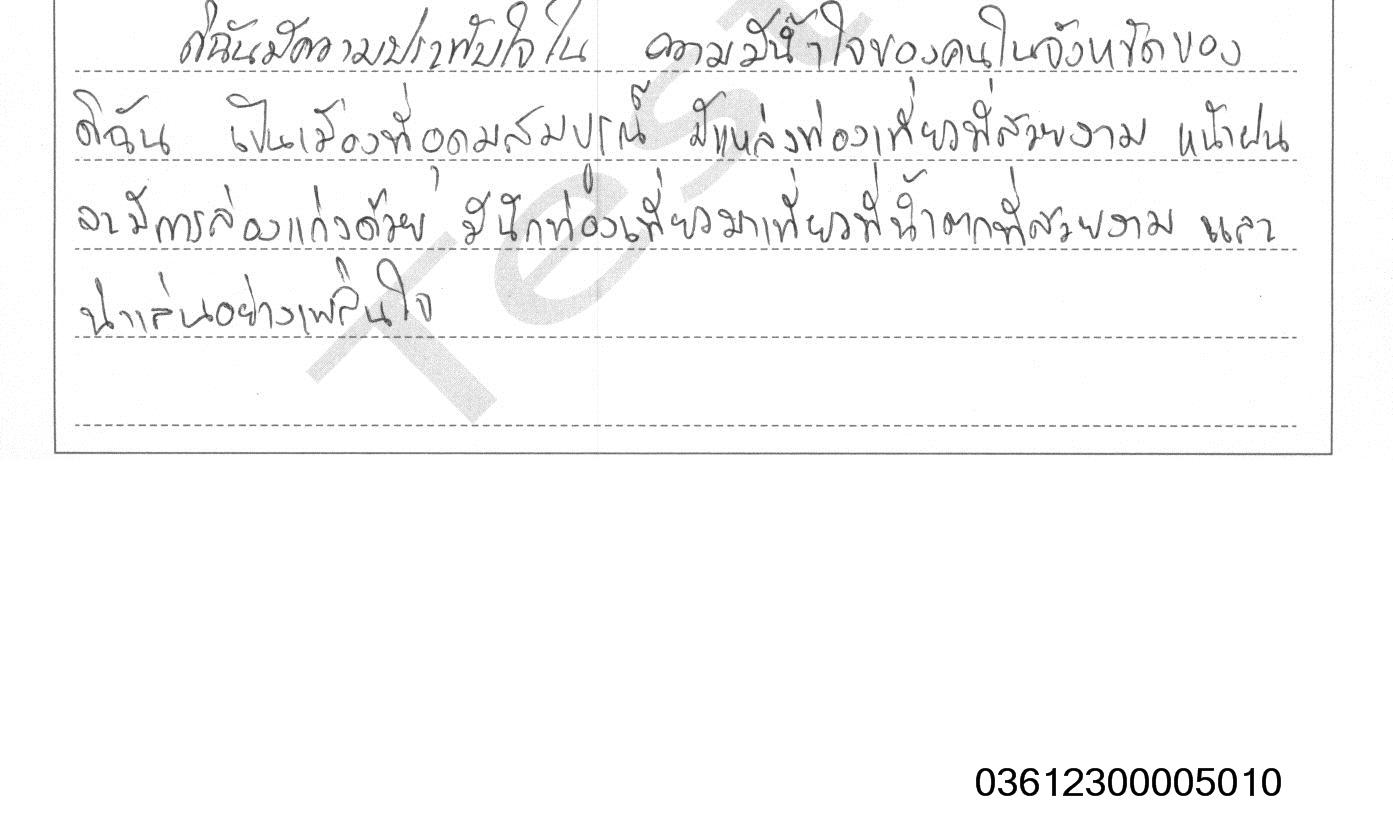 ดิฉันมีความประทับใจใน ความมีน้ำใจของคนในจังหวัดของ
ดิฉัน เป็นเมืองที่อุดมสมบูรณ์ มีแหล่งท่องเที่ยวที่สวยงาม หน้าฝน
จะมีการล่องแก่งด้วย มีนักท่องเที่ยวมาเที่ยวที่น้ำตกที่สวยงาม และ
น่าเล่นอย่างเพลินใจ
Test
03612300005010